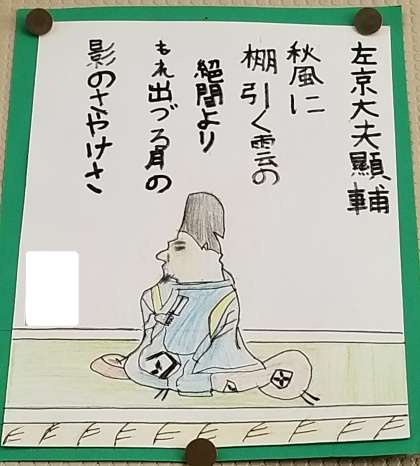 左京大夫顯輔
秋風に
棚引く雲の
絶間より
もれ出づる月の
影のさやけさ